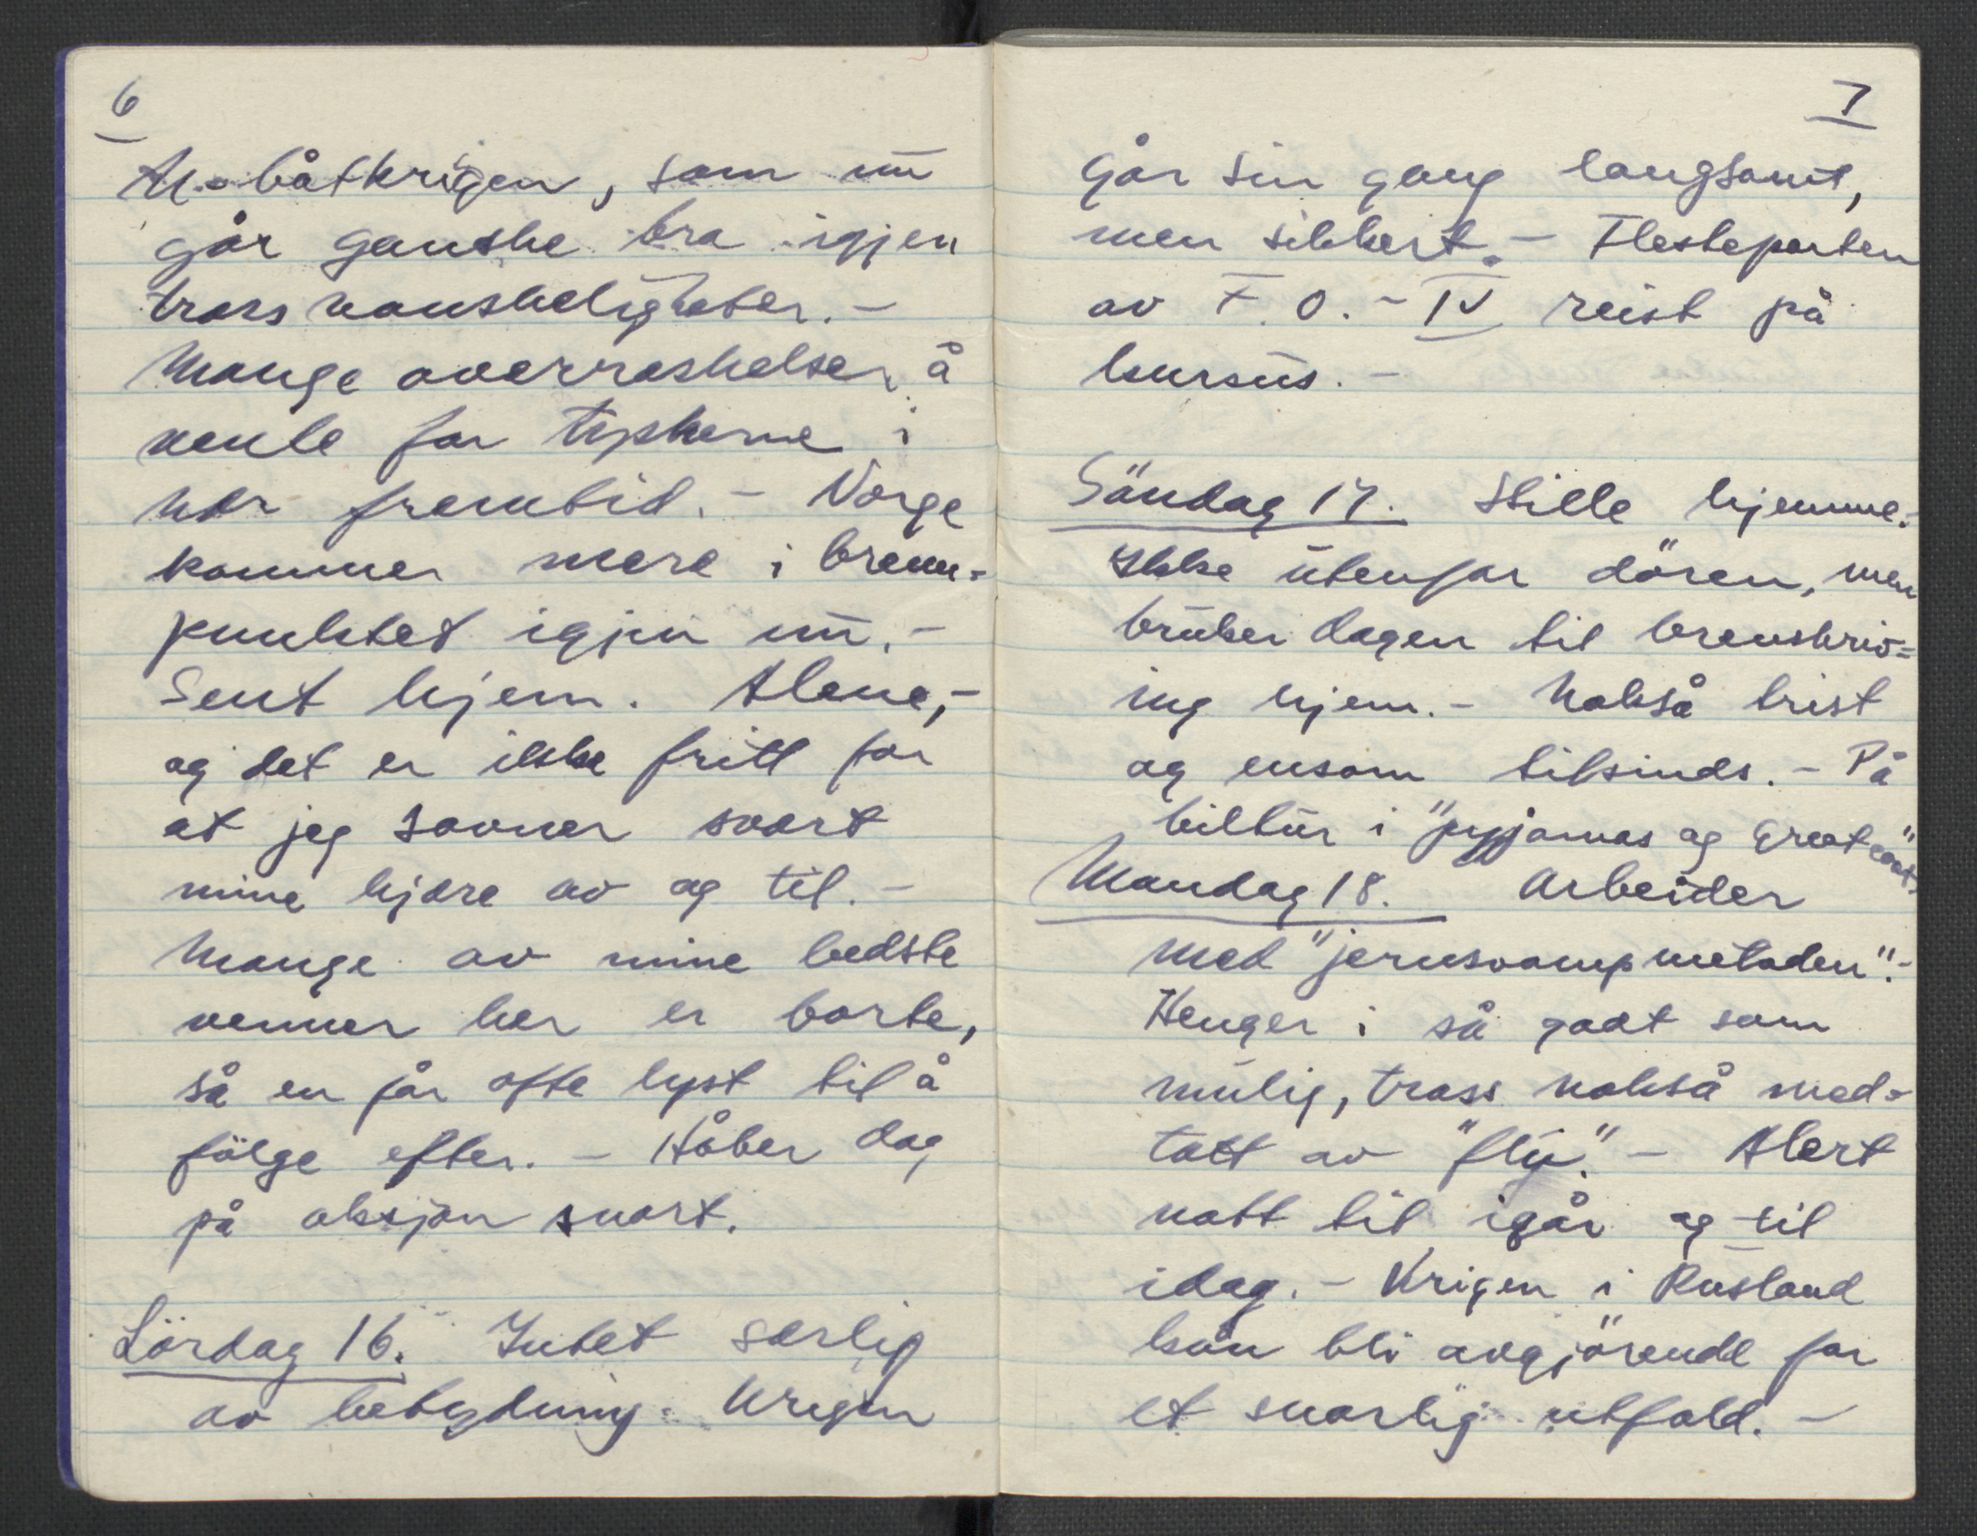 6
U-båtkrigen, som nu
går ganske bra igjen
tross vanskeligheter. -
Mange overraskelser å
vente for tyskerne i
nær fremtid. - Norge
kommer mere i brenn-
punktet igjen nu. -
Sent hjem. Alene, -
og det er ikke fritt for
at jeg savner svært
mine kjære av og til. -
Mange av mine bedste
venner her er borte,
så en får ofte lyst til å
fölge efter. - Håber dog
på aksjon snart.
Lördag 16. Intet særlig
av betydning. Krigen
7
går sin gang langsomt,
men sikkert. - Flesteparten
av F.O. - IV reist på
kursus. -
Söndag 17. Stille hjemme.
Ikke utenfor dören, men
bruker dagen til brevskriv=
ing hjem. - Nokså trist
og ensom tilsinds. - På
biltur i "pyjamas og great coat".
Mandag 18. Arbeider
med "jernsvampmetoden". -
Henger i så godt som
mulig, tross nokså med-
tatt av "fly". - Alert
natt til igår og til
idag. - Krigen i Rusland
kan bli avgjörende for
et snarlig utfald. -